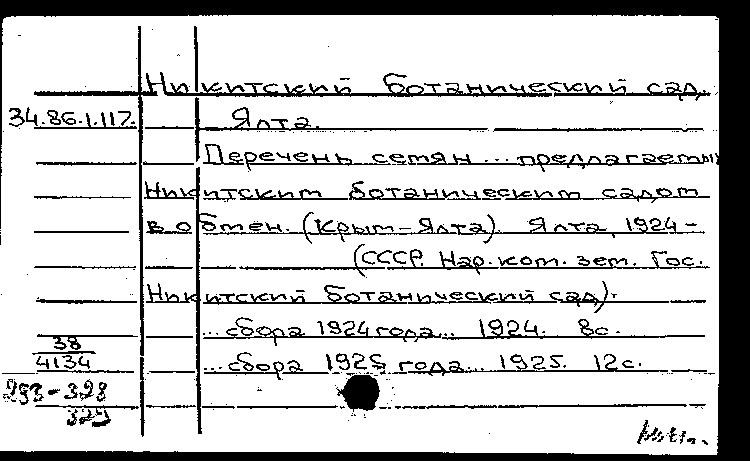 Никитский ботанический сад.
34.86.1.117. Ялта.
Перечень семян ... предлагаемых
Никитским ботаническим садом
в обмен. (Крым-Ялта). Ялта, 1924 -
(СССР. Нар. ком. зем. Гос.
Никитский ботанический сад).
... сбора 1924 года... 1924. 8 с.
... сбора 1925 года... 1925. 12 с.
38
4134
293-328
329